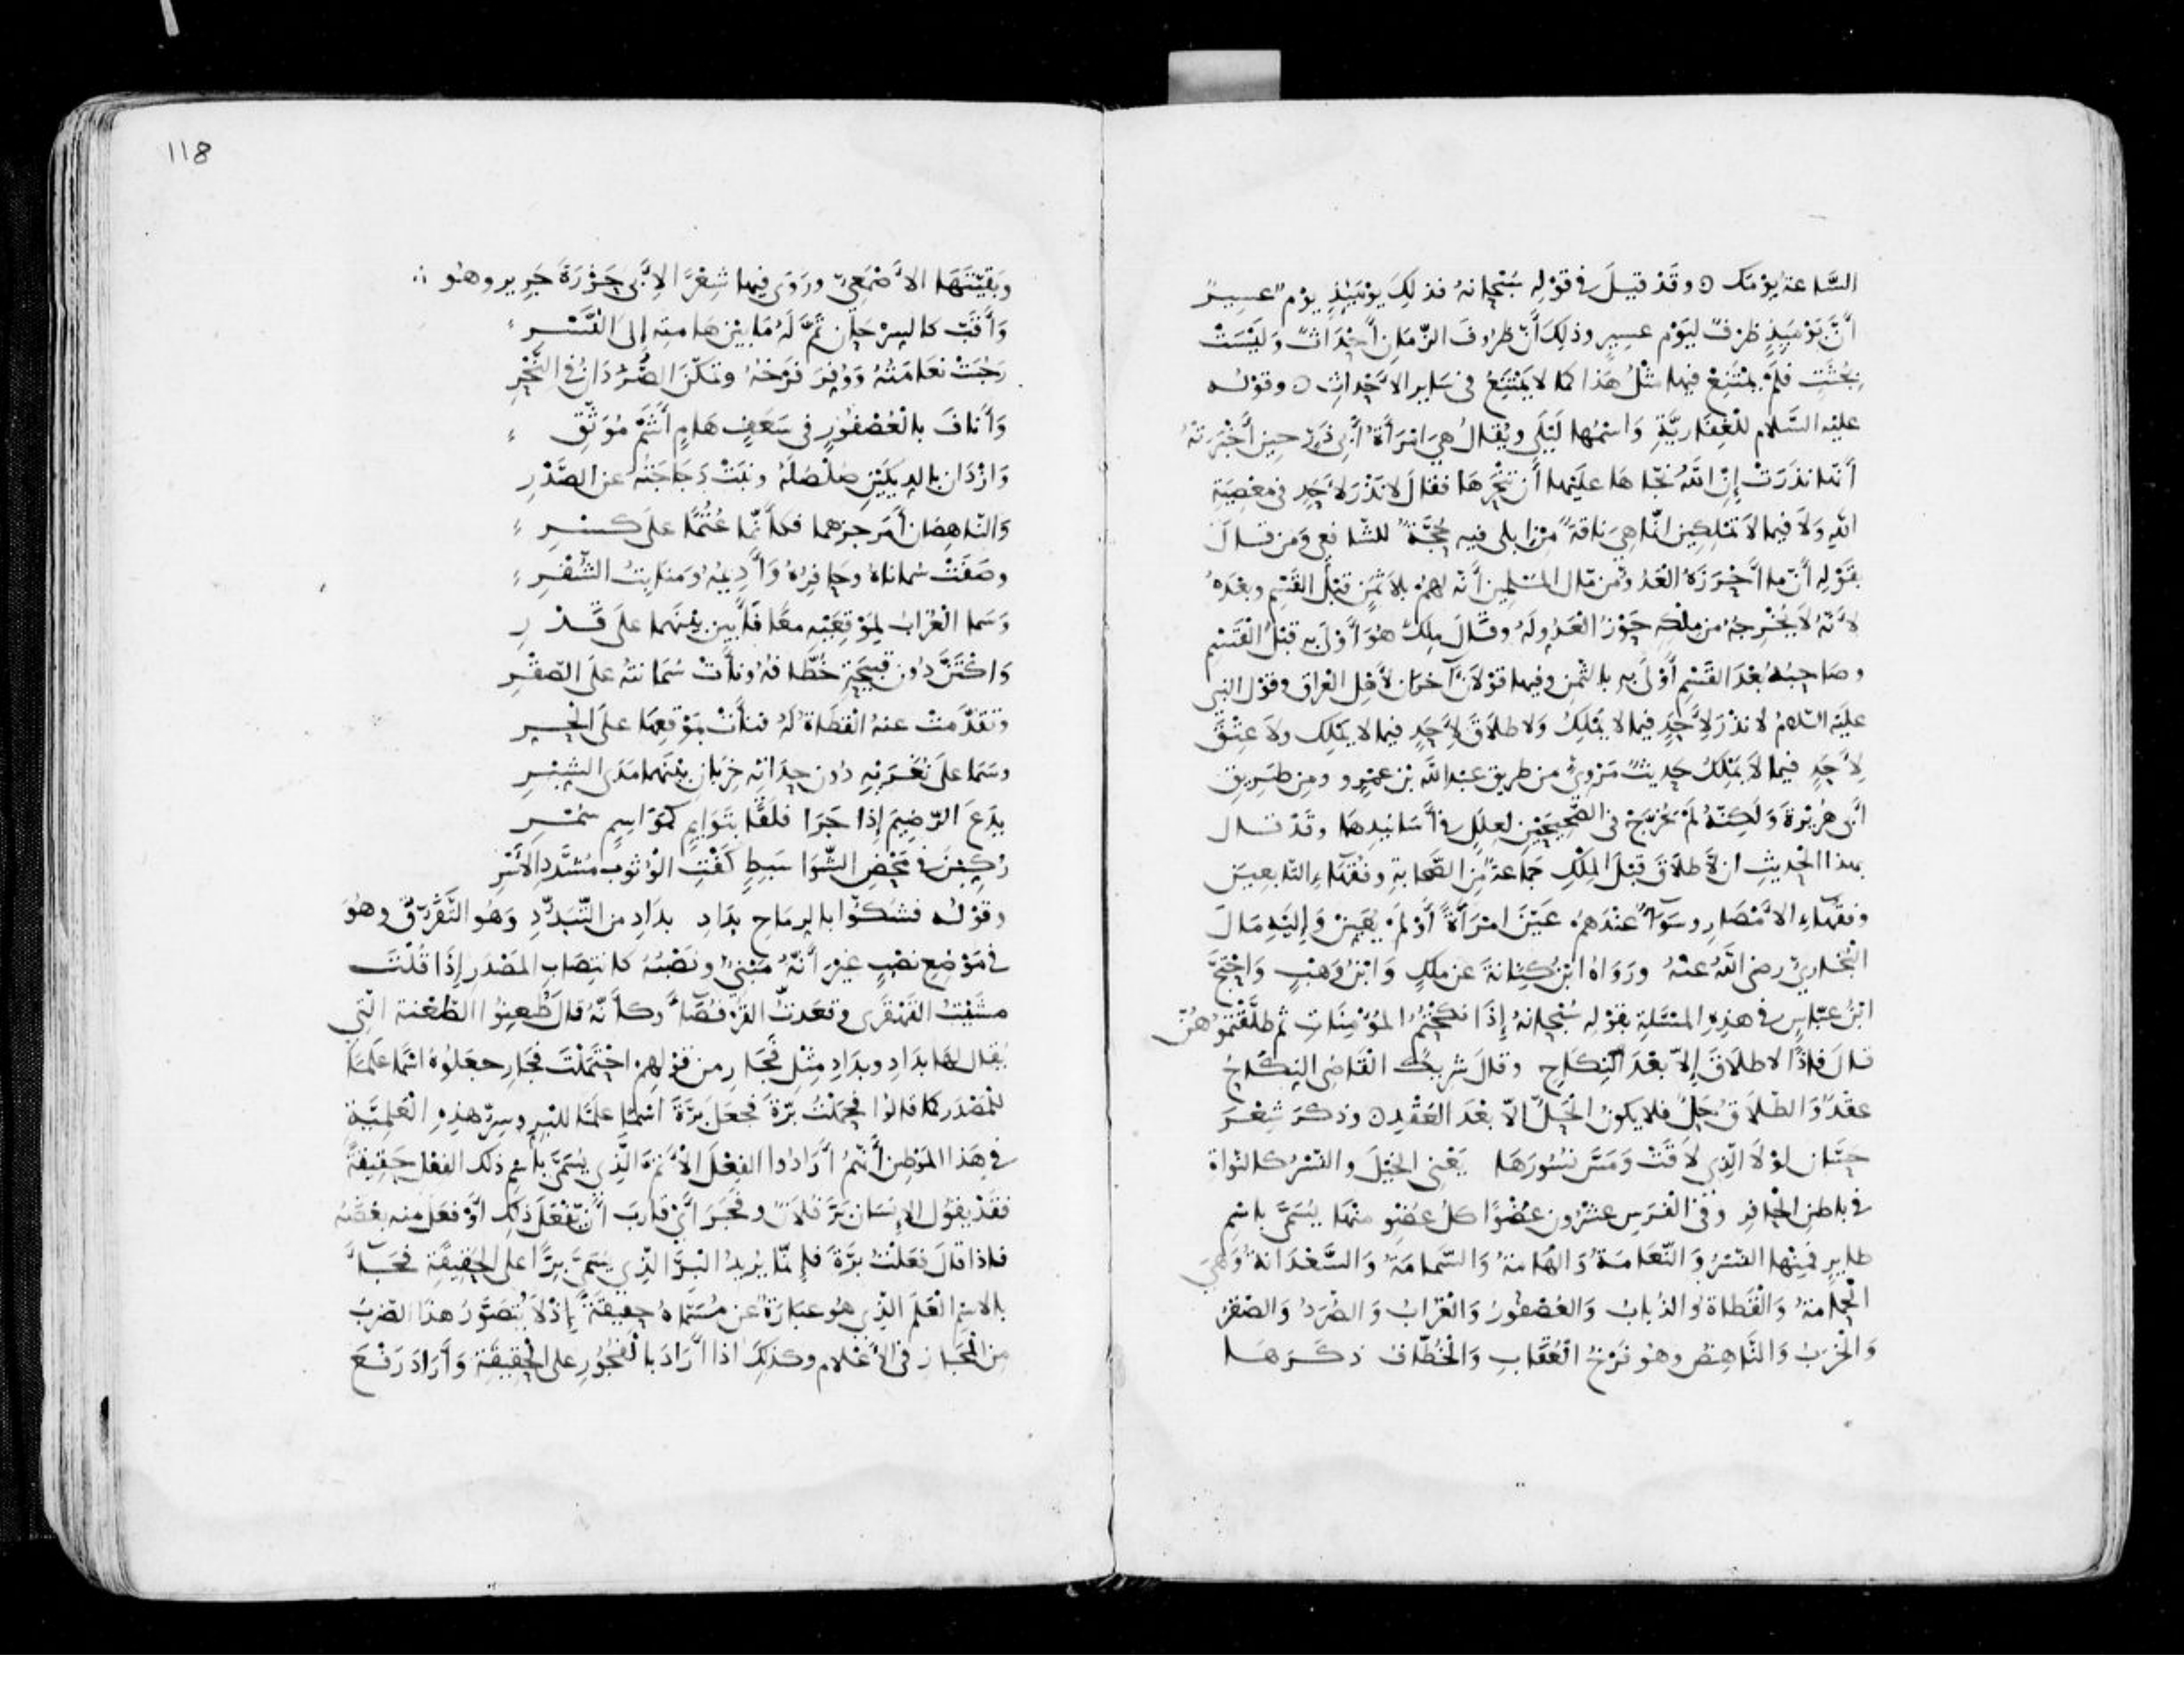 السَّاعة يَوْمَك ۝ وقَدْ قيلَ في قَوْلِه سُبْحانهُ فذلِكَ يوْمَئِذٍ يوْم عسِيرٌ
أنَّ يَوْمَئِذٍ ظرفٌ ليَوْم عسِيرٍ وذلِكَ أنّ ظرُوفَ الزّمَان أحْدَاثٌ وَلَيْسَتْ
بجُثَثٍ فلَمْ يمْتَنِعْ فيها مثْلُ هَذا كما لا يَمْتَنِعُ في سَايرِ الأحْدَاثِ ۝ وقوْلُه
عليْه السَّلام للْغِفَاريَّةِ وَاسْمُها لَيْلَى ويُقَالُ هِيَ امْرَأةُ أبي ذَرّ حين أخْبَرَتْهُ
أنّها نذَرَتْ إنِ اللهُ نجّاهَا عليْها أن تنْحَرَها فقالَ لا نذْرَ لأحَدٍ في مَعْصِيَةِ
اللهِ وَلا فيما لاَ تمْلِكين انّما هِيَ ناقَةٌ مِنْ ابلي فيه حُجَّةٌ للشّافعي ومَن قالَ
بقَوْلِه أنّ ما أحْرَزَهُ العَدُوّ من مال المسْلِمين أنّه لهُمْ بلا ثمَنٍ قبْلَ القَسْمِ وبعْدَهُ
لأنّهُ لا يُخْرِجُهُ من ملْكِهِ حَوْزُ العَدُوّ لَهُ وقالَ ملِكٌ هُوَ أوْلَى به قبْلَ القَسْمِ
وصَاحِبُهُ بعْدَ القَسْمِ أوْلَى به بالثّمن وفيها قوْلاَن آخرَان لأهْلِ العِراق وقوْل النبي
عليْهِ السّلامُ لا نذْرَ لأحَدٍ فيما لا يمْلِكُ وَلا طلاَقَ لأحَدٍ فيما لا يمْلِك ولاَ عِتْقَ
لأحَدٍ فيما لاَ يَمْلِكُ حَدِيثٌ مَرْوِيّ من طريق عبْدِ اللهِ بْن عَمْرٍو ومن طَرِيق
أبي هُرَيْرةَ وَلَكِنّهُ لَمْ يُخَرَّجْ في الصَّحِيحَيْنِ لعِلَلٍ في أسَانيدِهَا وقَدْ قال
بهذا الحْديثِ ان لا طلاَقَ قبْلَ المِلْكِ جمَاعةٌ مِن الصَّحابةِ وفُقَهَاءِ التّابِعِينَ
وفقَهَاءِ الأمْصَارِ وسَوَاءٌ عنْدَهُمْ عَيَّنَ امْرَأةً أوْ لَمْ يُعَيِّنْ وَإليْهِ مَالَ
البُخاريّ رضي اللهُ عنْهُ ورَوَاهُ ابْنُ كِنَانةَ عن ملِكٍ وَابْنُ وَهْبٍ وَاحْتَجَّ
ابْنُ عبّاسٍ في هذِهِ المسْئَلةِ بقوْلِه سُبْحانهُ إذَا نكَحْتُمُ المُؤْمِنَاتِ ثم طلّقْتُمُوهُنّ
قالَ فاذًا لا طلاَقَ إلاّ بعْدَ النِّكَاحِ وقالَ شرِيكٌ القَاضِي النِكَاحُ
عقْدٌ وَالطّلاَقُ حَلٌّ فلا يكونُ الحَلُّ الاّ بعْدَ العَقْدِ ۝ وذكرَ شِعْرَ
حسَّان لوْلاَ الّذِي لاَقَتْ وَمَسَّ نسُورَهَا يَعْني الخيْلَ والنّسْرُ كالنّواةِ
في باطنِ الحْافرِ وفي الفَرَسِ عشْرُون عُضْوًا كلُّ عُضْوٍ منْهَا يُسَمَّى باسْمِ
طايرٍ فمِنْها النّسْرُ وَالنّعَامَةُ وَالهَامَةُ وَالسَّمامَةُ وَالسَّعْدَانةُ وَهِيَ
الحْمامَةُ وَالقَطَاةُ والذُبابُ وَالعُصْفورُ وَالغُرَابُ وَالصُّرَدُ وَالصّقْرُ
وَالخْرَبُ وَالنّاهِضُ وهُو فَرْخُ العُقَابِ وَالخُطّافُ ذكَرَهَا
118
وبَقِيّتَهَا الأصْمَعِيّ ورَوَى فيها شِعْرًا لأبي حَزْرَةَ جَرِير وهُو ∴
وَأقَبَّ كالسِرْحَانِ تَمَّ لَهُ مَا بيْن هَامتِهِ إلَى النَّسْرِ
رَحُبَتْ نعَامَتُهُ وَوُفِّرَ فَرْخُهُ وتمكّنَ الصُّرَدَانُ في النَّحْرِ
وَأنَافَ بالعُصْفُورِ في سَعَفٍ هَامٍ أشَمَّ مُوَثَّقِ
وَازْدَان بالدِيكَيْنِ صُلْصُلُهُ ونبَتْ دَجَاجَتُهُ عن الصَّدْرِ
وَالنّاهِضَان أُمِرَّ جزهما فكأنّما عُثِمَا علَى كسْرِ
وصَفَتْ سُماناهُ وحَافِرُهُ وَأدِيمُهُ ومنَابِتُ الشُّعْرِ
وَسَما الغُرَابُ لِمَوْقِعَيْهِ معًا فأبين بيْنَهما علَى قَدْرِ
وَاكْتَنَّ دُون قَبيحَةِ خُطّافهُ ونأتْ سُمَانتُهُ علَى الصّقْرِ
وتقدّمَتْ عنهُ القَطاةُ لَهُ فنأتْ بمَوْقِعِها علَى الحُرِّ
وسَمَا علَى نَقْوَيْهِ دُون حِدَاتِهِ خرَبَان بيْنَهما مَدَى الشِبْرِ
يدَعَ الرّضِيمَ إذا جَرَا فلَقًا بتَوَايمٍ كموَاسِمٍ سُمْرِ
رُكِّبْنَ في مَحْضِ الشَّوَا سَبِطٍ كَفْتِ الوُثُوبِ مُشَدَّدِ الأسْرِ
وقوْلُه فشكّوا بالرمَاحِ بدَادِ بدَادِ من التّبَدُّدِ وَهُو التّفَرّقُ وهُوَ
في مَوْضِع نصْبٍ غيْرَ أنّهُ مَبْنيٌّ ونصْبُهُ كانتِصَابِ المصْدَرِ إذَا قلْتَ
مشَيْتُ القَهْقَرَى وقعَدتُّ القُرْفُصَاءَ وكأنّهُ قالَ طُعِنُوا الطّعْنة الّتِي
يُقال لها بدَادِ وبدَادِ مِثْل فَجَارِ من قوْلِهِم احْتَمَلْتَ فَجَارِ جعَلُوهُ اسْمًا عَلَمًا
للْمَصْدَر كما قالوا فحمَلْتُ بَرّةَ فجعَلَ بَرَّةَ اسْمًا علَمًا للبِرّ وسِرّ هَذِهِ العَلمِيَّةِ
في هَذا المَوْطِن أنّهُمْ أرَادُوا الفِعْلَ الأتَمّ الّذِي يُسَمَّى باسْمِ ذلك الفعْل حَقِيقةً
فقَدْ يقوُل الإنسَان بَرَّ فلاَنٌ وفَجَرَ أيْ قارَبَ أنْ يفْعَلَ ذَلِك أوْ فعَل منه بعْضَهُ
فاذا قالَ فعَلْتُ بَرّةَ فإنّما يُرِيدُ البِرَّ الّذِي يُسَمَّى بِرًّا علَى الحَقِيقَةِ فجَاءَ
بالاسْمِ العَلَمِ الّذِي هُو عبَارَةٌ عن مُسَمّاهُ حَقِيقَةً إذْ لاَ يُتَصَوّرُ هذَا الضّرْبُ
مِن المَجَاز في الأعْلام وكذلِكَ اذا أرَادَ بالفُجُورِ علَى الحَقِيقَةِ وَأرَادَ رَفْعَ